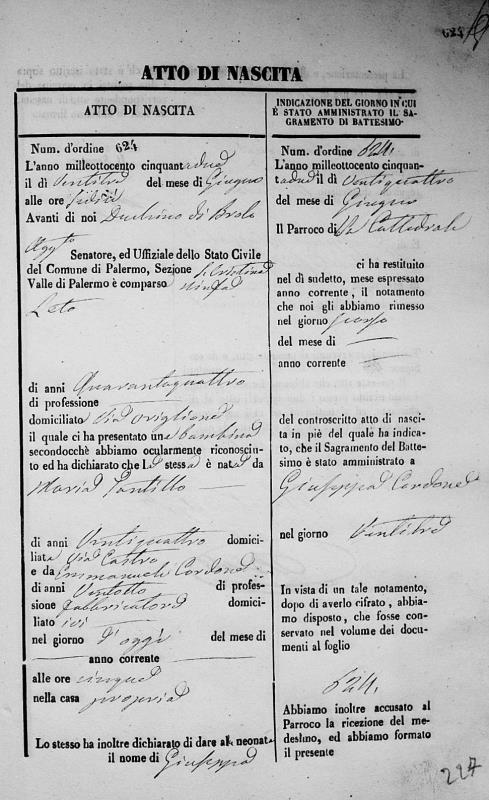 624
ATTO DI NASCITA
ATTO DI NASCITA
Num. d'ordine 624
L'anno milleottocento cinquantadue
il dì Ventitre del mese di Giugno
alle ore sedici
Avanti di noi Duchino di Brolo
Agg.to
Senatore, ed Uffiziale dello Stato Civile
del Comune di Palermo, Sezione S. Cristina
Valle di Palermo è comparso Ninfa
Leto
di anni Quarantaquattro
di professione —
domiciliato Via Origlione
il quale ci ha presentato una bambina
secondocchè abbiamo ocularmente riconosciu-
to ed ha dichiarato che la stessa è nata da
Maria Pantillo —
di anni Ventiquattro domici-
liata Via Castro
e da Emmanuele Cordone
di anni Ventotto di profes-
sione fabbricatore domici-
liato ivi
nel giorno d'oggi del mese di
— anno corrente —
alle ore cinque
nella casa propria
Lo stesso ha inoltre dichiarato di dare al neonata
il nome di Giuseppa
INDICAZIONE DEL GIORNO IN CUI
È STATO AMMINISTRATO IL SA-
GRAMENTO DI BATTESIMO
Num. d'ordine 624.
L'anno milleottocento cinquan-
tadue il dì Ventiquattro
del mese di Giugno
Il Parroco di Cattedrale
ci ha restituito
nel dì sudetto, mese espressato
anno corrente, il notamento
che noi gli abbiamo rimesso
nel giorno
del mese di —
anno corrente —
del controscritto atto di nasci-
ta in piè del quale ha indica-
to, che il Sagramento del Batte-
simo è stato amministrato a
Giuseppa Cordone
nel giorno Ventitre
In vista di un tale notamento,
dopo di averlo cifrato, abbia-
mo disposto, che fosse con-
servato nel volume dei docu-
menti al foglio
624.
Abbiamo inoltre accusato al
Parroco la ricezione del me-
desimo, ed abbiamo formato
il presente
227